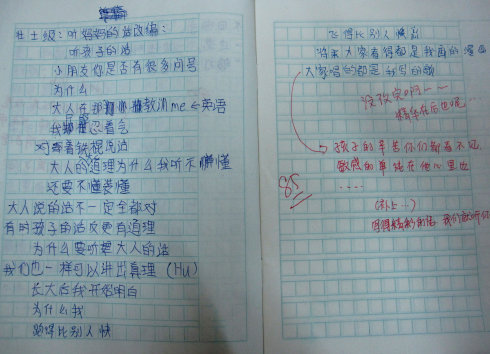 听妈妈的话改编:
听孩子的话
小朋友你是否有很多问号
为什么
大人在那 教训me ← 英语
我 忍着气
对着 视说话
大人的道理为什么我听不懂
还要不懂装懂
大人说的话不一定全都对
有时孩子的话反更有道理
为什么要听 大人的话
我们也一样可以讲出真理 (Hu)
长大后我开始明白
为什么我
跑得比别人快
飞得比别人高
将来大家看得都是我画的漫画
大家唱的都是我写的歌
没改完呵~~
精华在后 呢...
孩子的辛苦你们都看不见
敏感的 在他心里边
....
85
(补上...)
写得精彩的话 我们就听